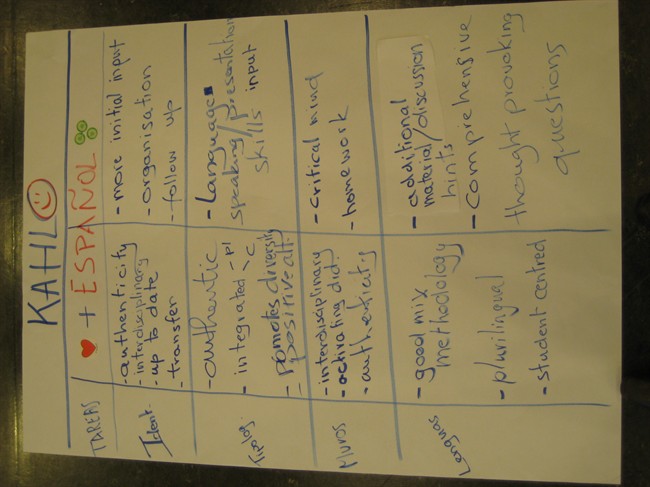 KAHLO
TAREAS
+ ESPAÑOL
Ident.
- authenticity
- interdisciplinary
- up to date
- transfer
- more initial input
- organisation
- follow up
- authentic
- integrated - pl
- c
- Promotes diversity
positive att.
- Language
speaking/presentation
skills input
Muros
- interdisciplinary
- activating did.
- authenticity
- critical mind
- homework
Lenguas
- good mix
methodology
- plurilingual
- student centred
- additional
material/discussion
hints
- comprehensive
thought provoking
questions